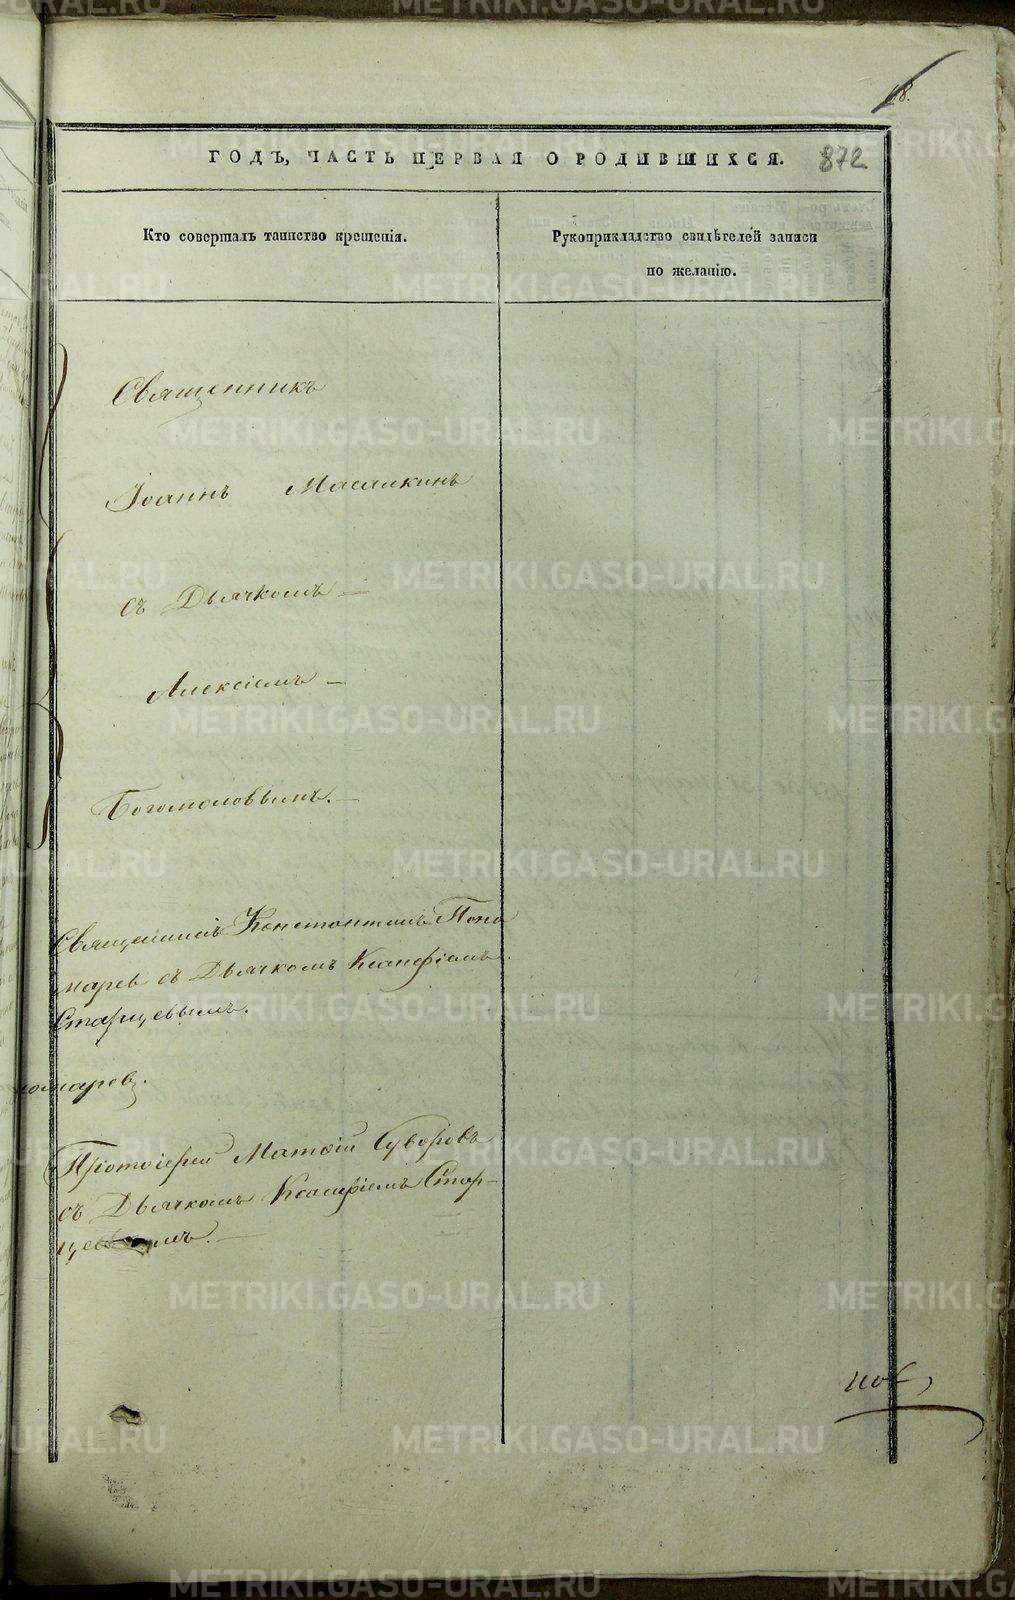 18.
ГОДЪ, ЧАСТЬ ПЕРВАЯ О РОДИВШИХСЯ.
872
Кто совершалъ таинство крещенія.
Рукоприкладство свидѣтелей записи
по желанію.
Священникъ
Іоаннъ Масалкинъ
съ Дьячкомъ —
Алексіемъ —
Богомоловымъ. —
Священникъ Константинъ Поно
марев съ Дьячкомъ Ксанфіемъ
Старцевымъ.
номарев.
Протоіерей Матѳій Суворовъ
съ Дьячкомъ Ксанфіемъ Стар-
цевымъ. —
METRIKI.GASO-URAL.RU